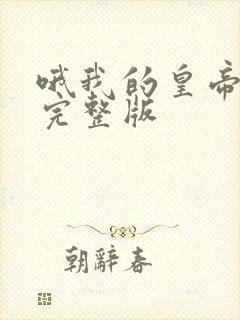 哦我的皇帝
完整版
朝辞春